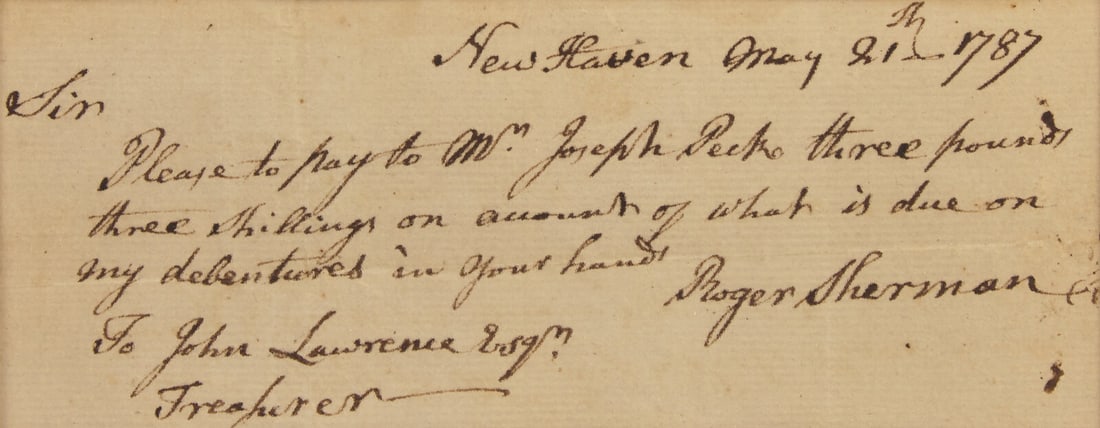 New Haven May 21th 1787
Sir
Please to pay to Mr. Joseph Peck three pounds
three shillings on account of what is due on
my debentures in your hands
Roger Sherman
To John Lawrence Esqr.
Treasurer